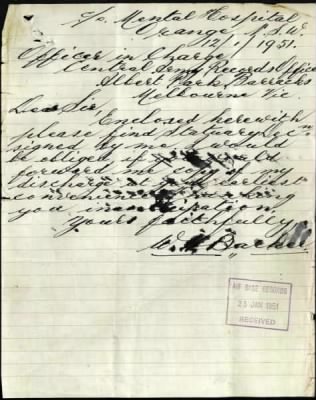 c/o Mental Hospital
Orange N.S.W.
12/1/1951.
Officer in Charge
Central Army Records Office
Albert Park Barracks
Melbourne Vic.
Dear Sir,
Enclosed herewith
please find Statuary Decn
signed by me. I would
be obliged if you would
forward me copy of my
discharge at
convenience. Thanking
you in anticipation,
Yours faithfully
AIF BASE RECORDS
23 JAN 1951
RECEIVED